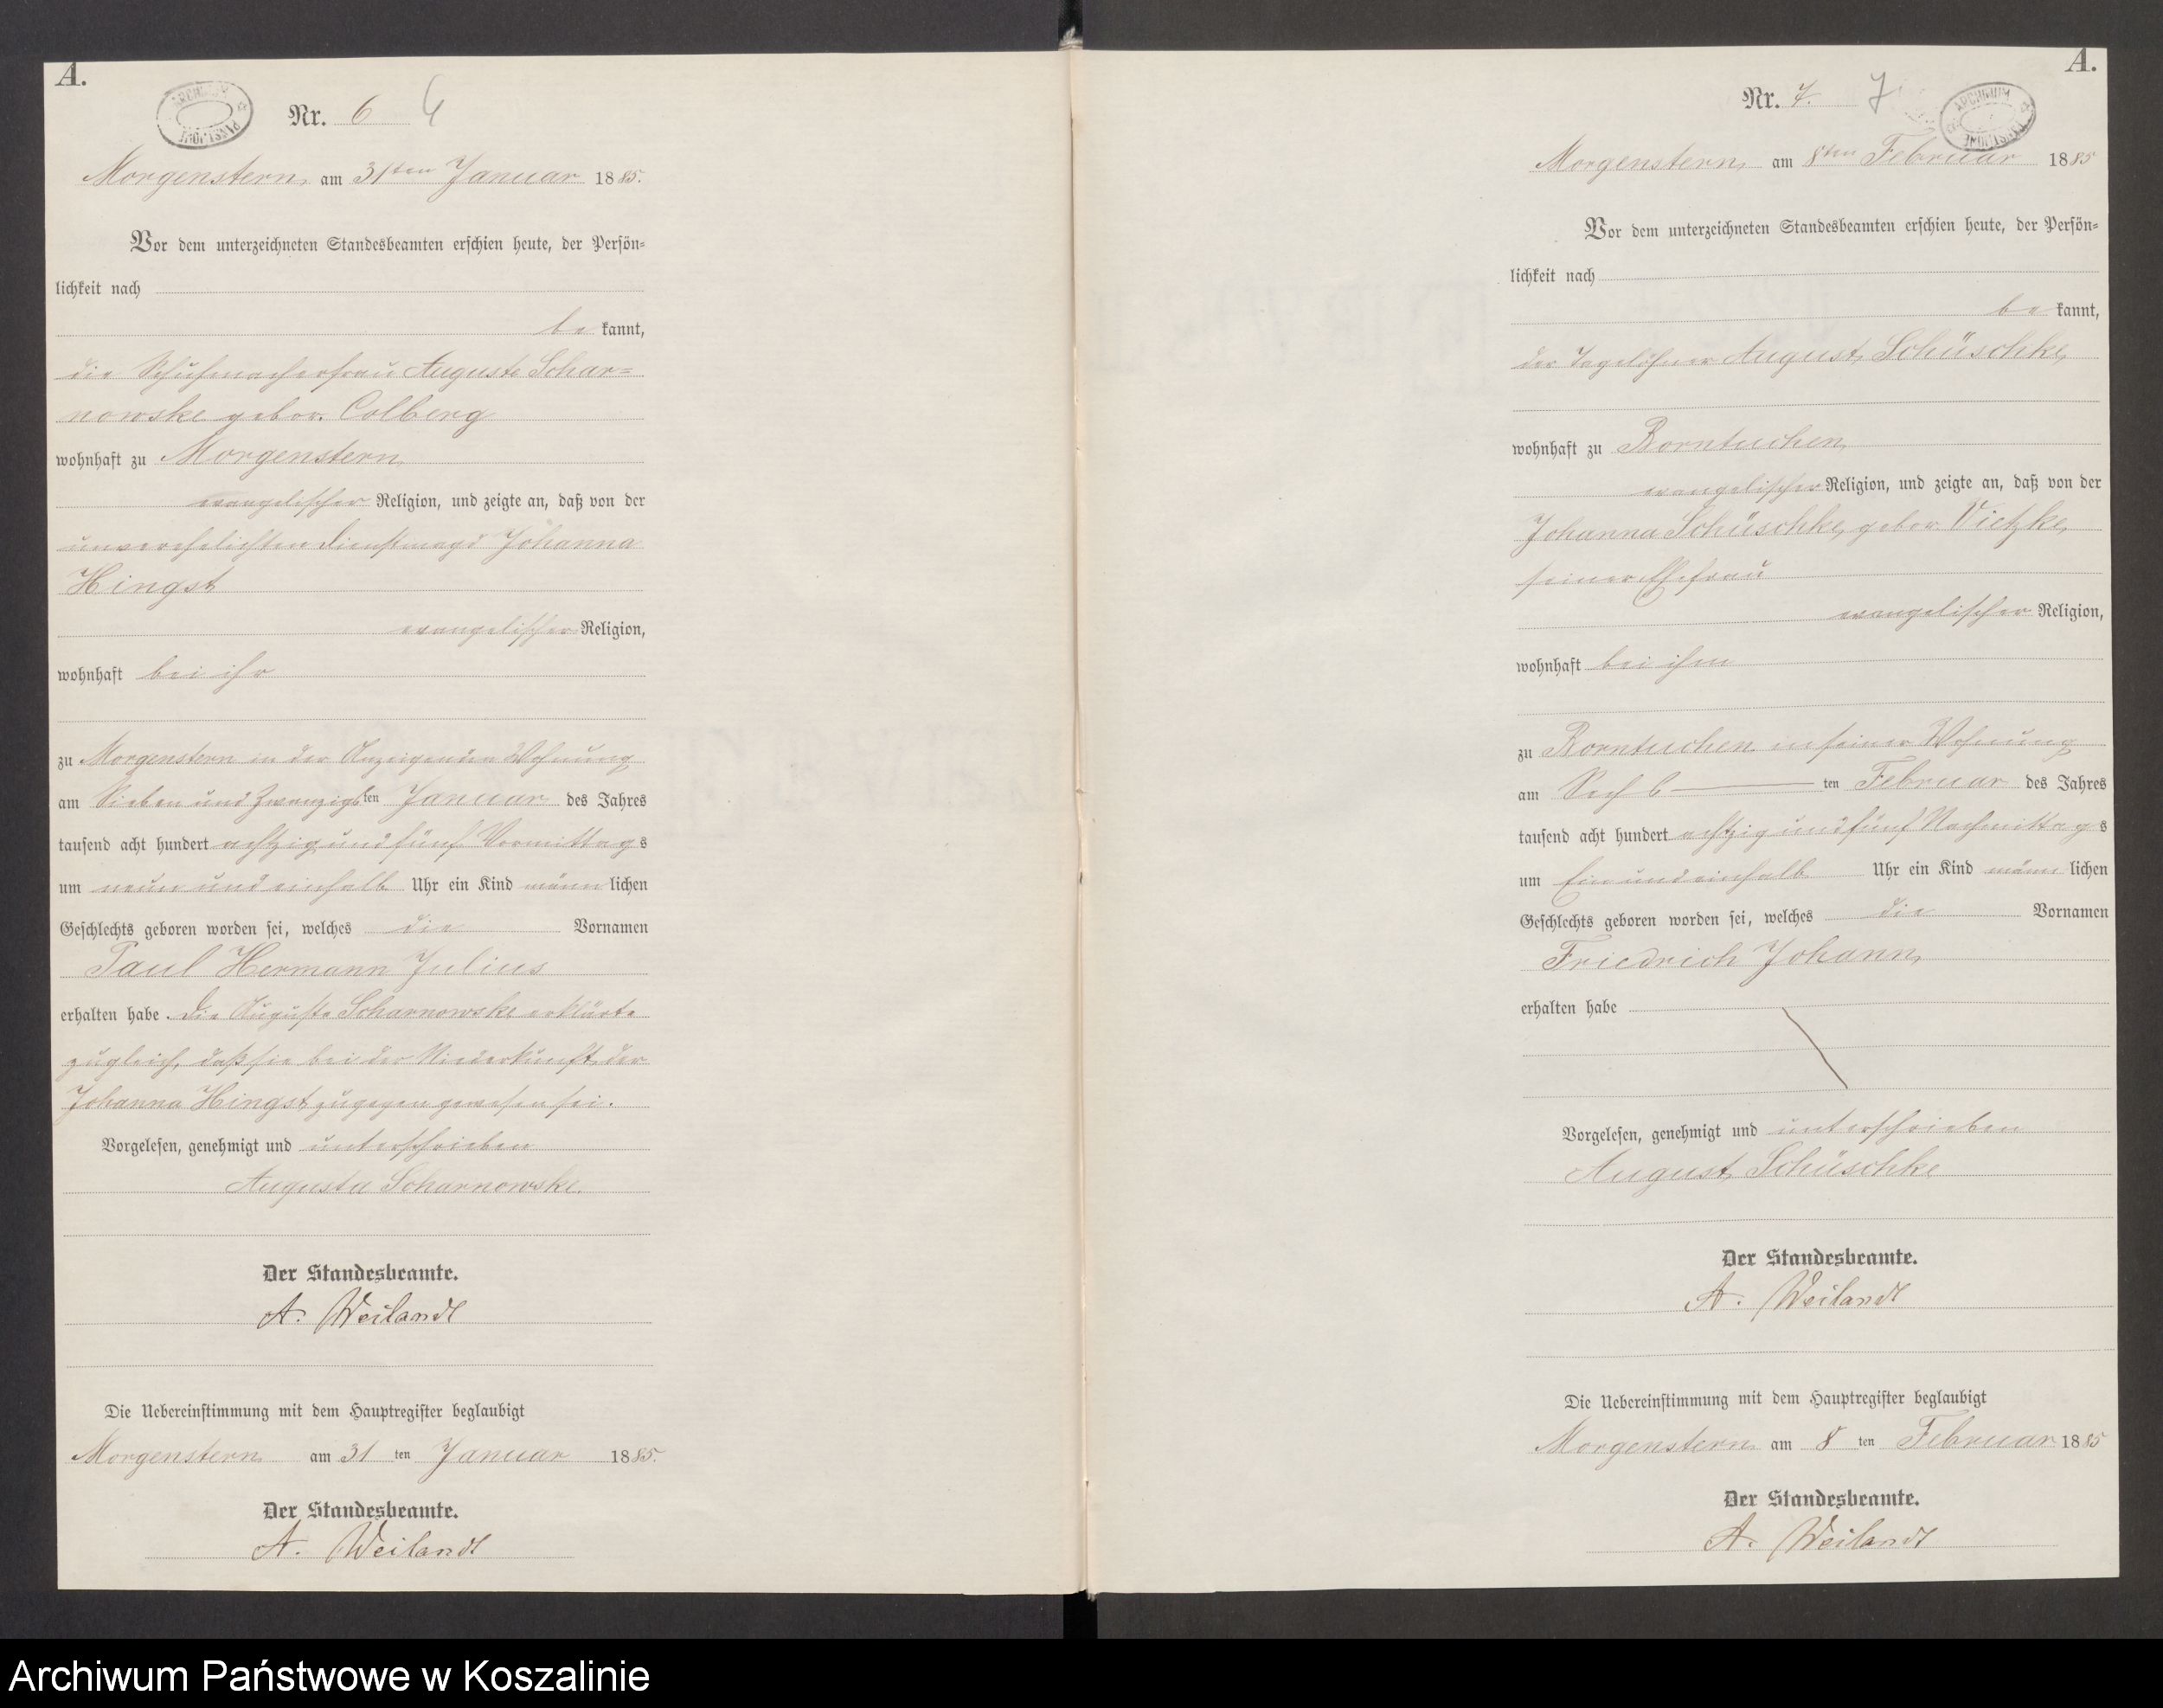 A.
ARCHIWUM PAŃSTWOWE
Nr. 6 6
Morgenstern, am 31ten Januar 1885.
Vor dem unterzeichneten Standesbeamten erschien heute, der Persön-
lichkeit nach
be kannt,
die Schuhmacherfrau Auguste Schar-
nowske gebor. Colberg
wohnhaft zu Morgenstern,
evangelischer Religion, und zeigte an, daß von der
unverehelichten Dienstmagd Johanna
Hingst
evangelischer Religion,
wohnhaft bei ihr
zu Morgenstern in der Anzeigenden Wohnung
am Sieben und Zwanzigsten Januar des Jahres
tausend acht hundert achtzig und fünf Vormittags
um neun und einhalb Uhr ein Kind männlichen
Geschlechts geboren worden sei, welches die Vornamen
Paul Hermann Julius
erhalten habe. Die Auguste Scharnowske erklärte
zugleich, daß sie bei der Niederkunft der
Johanna Hingst zugegen gewesen sei.
Vorgelesen, genehmigt und unterschrieben
Augusta Scharnowske.
Der Standesbeamte.
A. Weilandt
Die Uebereinstimmung mit dem Hauptregister beglaubigt
Morgenstern, am 31 ten Januar 1885.
Der Standesbeamte.
A. Weilandt
A.
Nr. 7. 7
ARCHIWUM PAŃSTWOWE
Morgenstern, am 8ten Februar 1885
Vor dem unterzeichneten Standesbeamten erschien heute, der Persön-
lichkeit nach
be kannt,
der Tagelöhner August Schüschke,
wohnhaft zu Borntuchen,
evangelischer Religion, und zeigte an, daß von der
Johanna Schüschke, gebor. Vietzke,
seiner Ehefrau
evangelischer Religion,
wohnhaft bei ihm
zu Borntuchen in seiner Wohnung
am Sechs ten Februar des Jahres
tausend acht hundert achtzig und fünf Nachmittags
um Ein und einhalb Uhr ein Kind männlichen
Geschlechts geboren worden sei, welches die Vornamen
Friedrich Johann,
erhalten habe
Vorgelesen, genehmigt und unterschrieben
August Schüschke
Der Standesbeamte.
A. Weilandt
Die Uebereinstimmung mit dem Hauptregister beglaubigt
Morgenstern, am 8 ten Februar 1885
Der Standesbeamte.
A. Weilandt
Archiwum Państwowe w Koszalinie